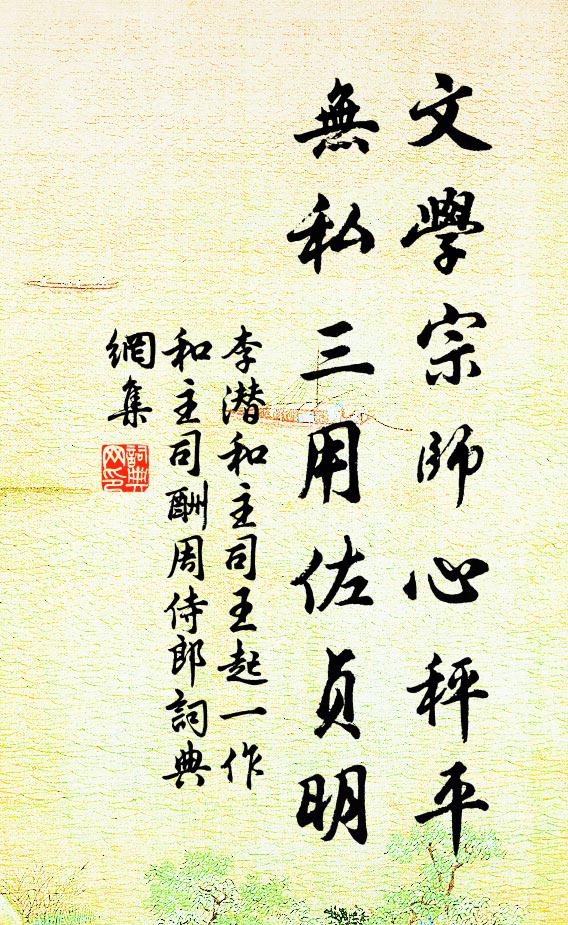 文學宗師心秤平
無私三用佐貞明
李潜和主司王起一作
和主司酬周侍郎詞典
網集
詞典
网印